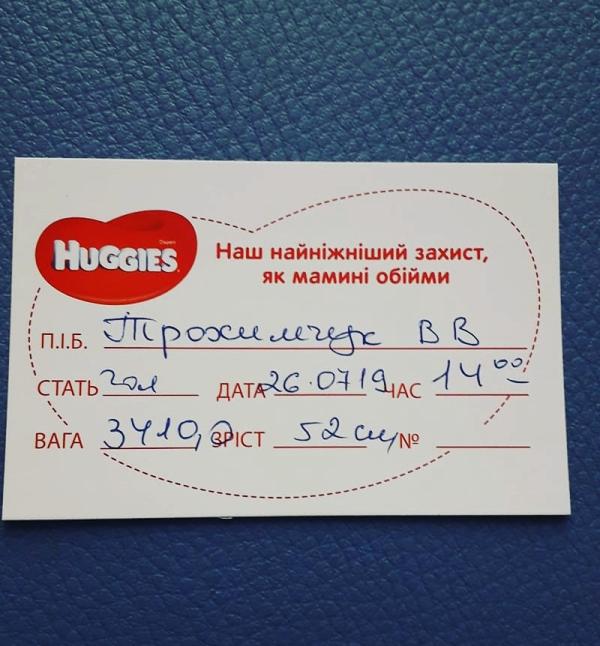 HUGGIES
Наш найніжніший захист,
як мамині обійми
П.І.Б. Трохимчук В В
СТАТЬ чол ДАТА 26.0719 ЧАС 14⁰⁰
ВАГА 3410,0 ЗРІСТ 52 см №